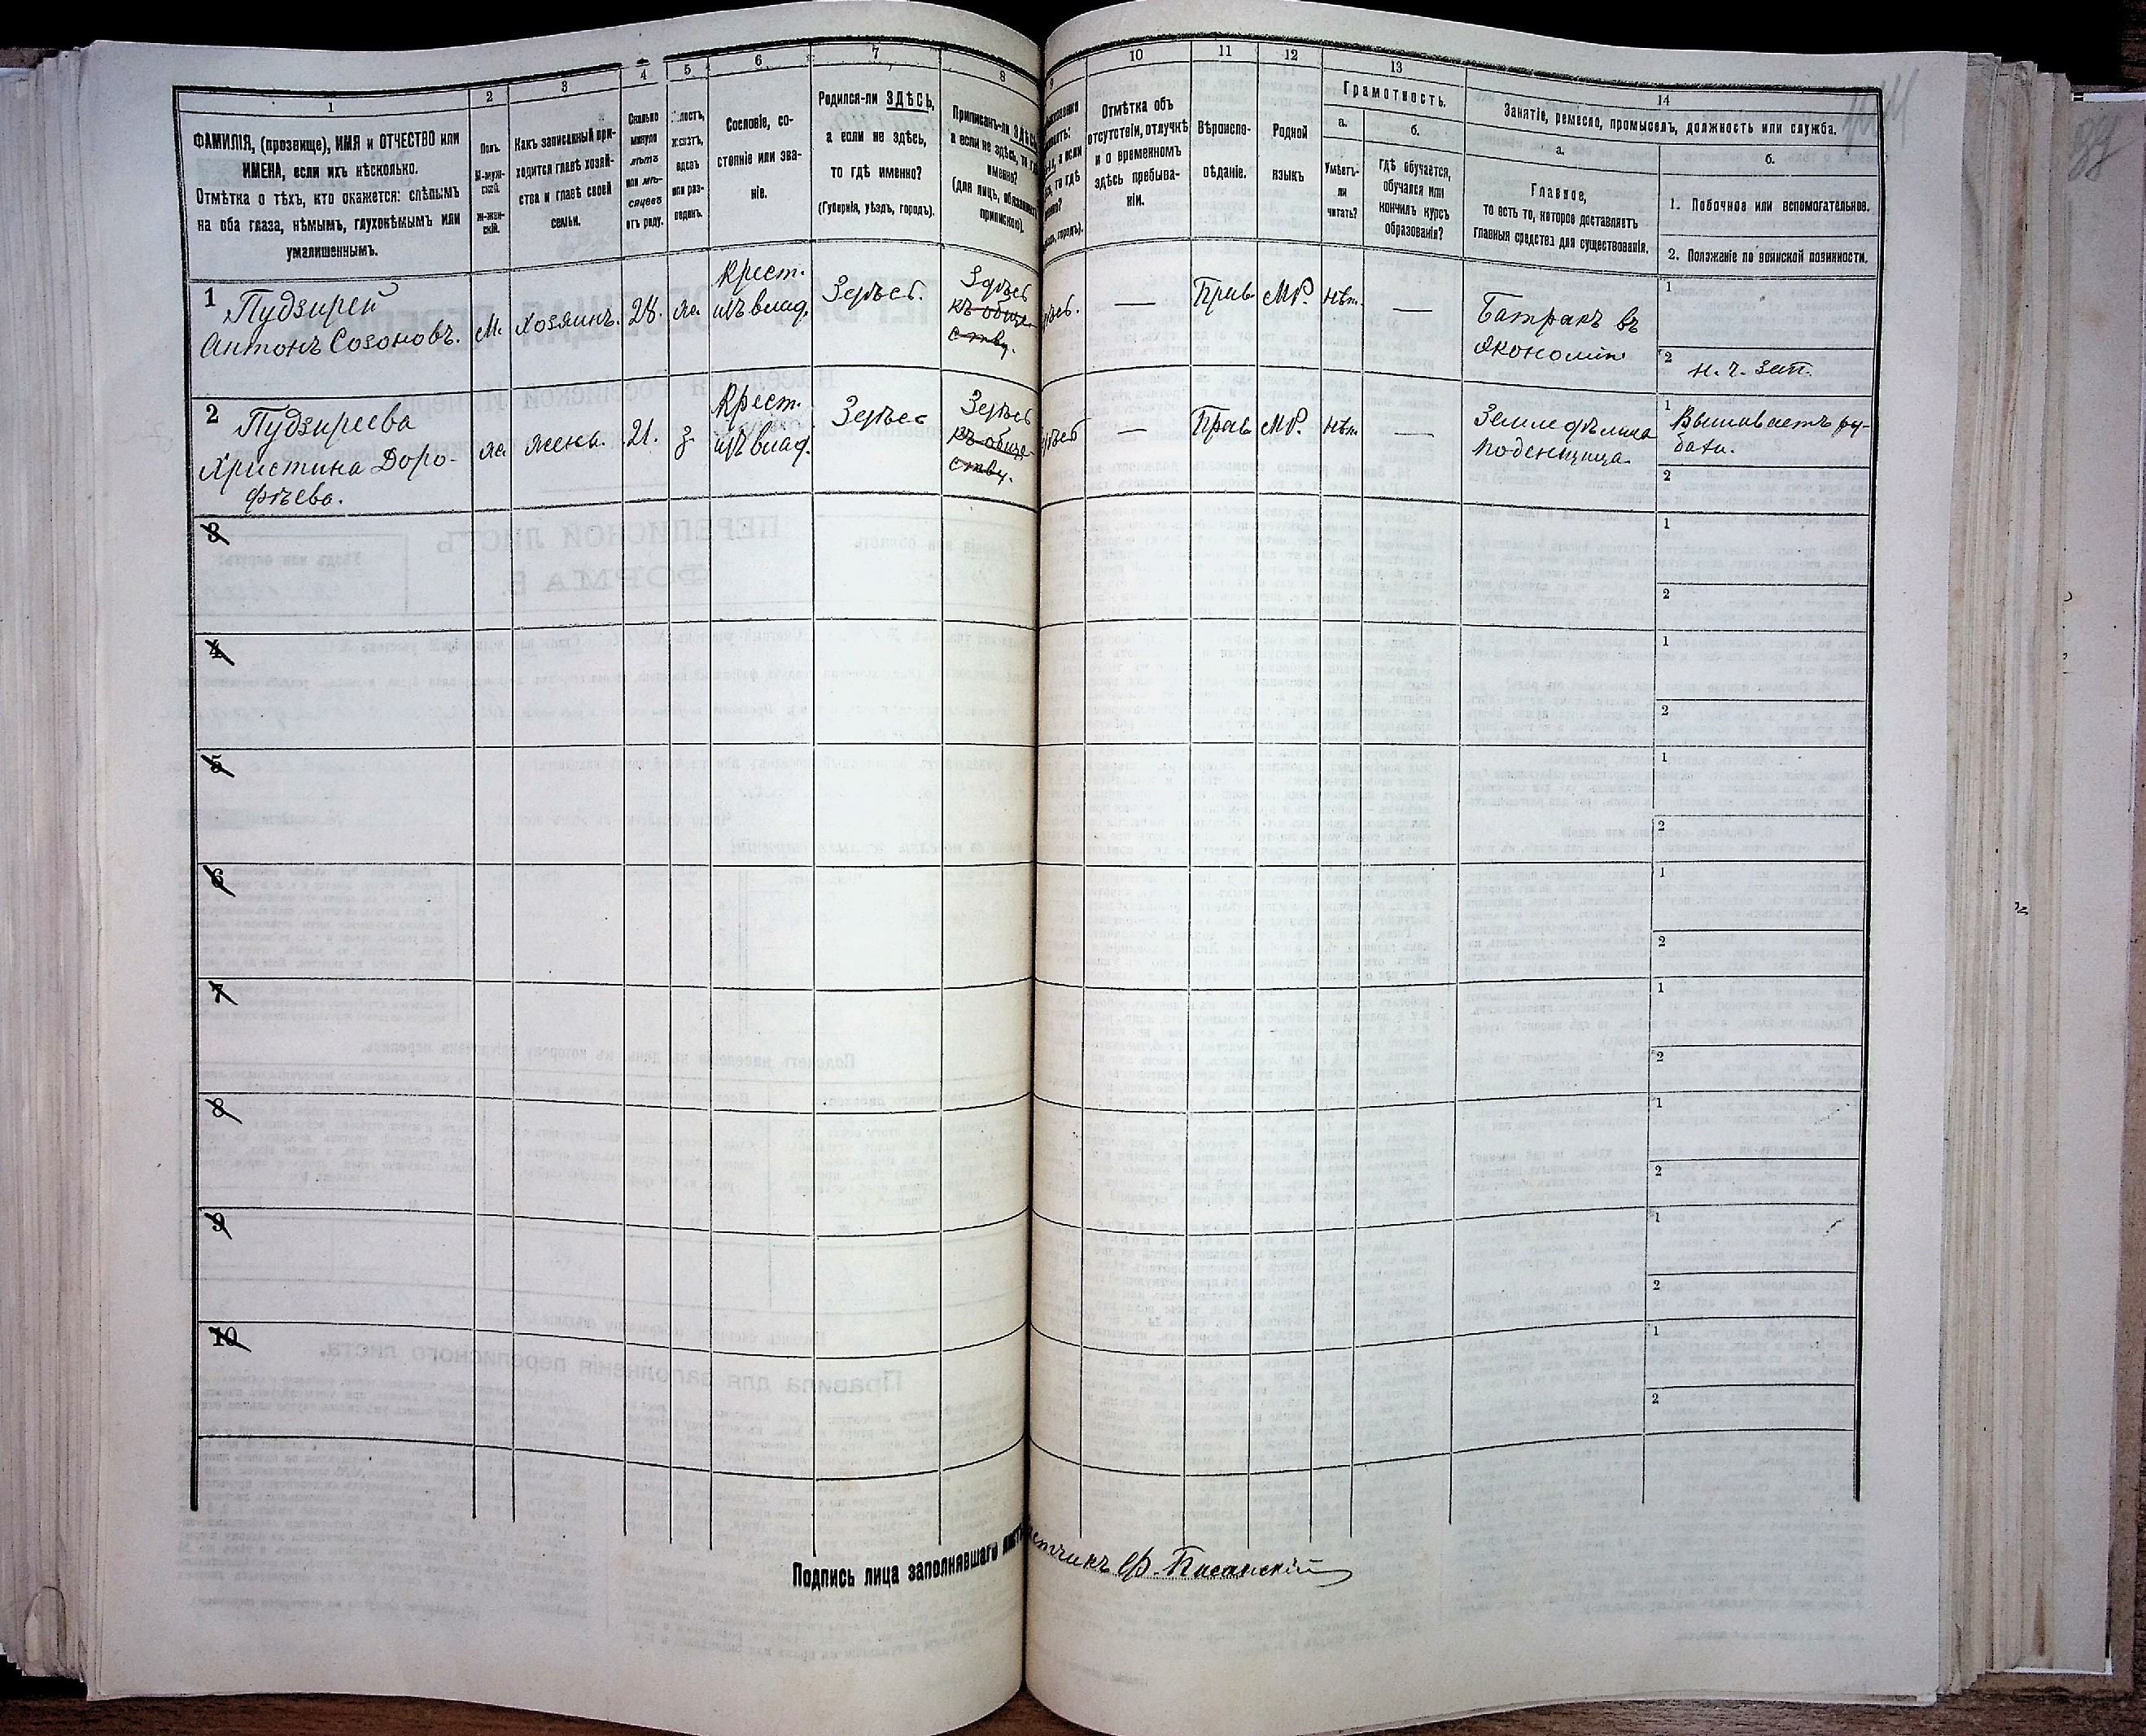 1
2
3
4
5
6
7
8
9
10
11
12
13
14
ФАМИЛІЯ, (прозвище), ИМЯ и ОТЧЕСТВО или
ИМЕНА, если ихъ нѣсколько.
Отмѣтка о тѣхъ, кто окажется: слѣпымъ
на оба глаза, нѣмымъ, глухонѣмымъ или
умалишеннымъ.
Полъ.
М-муж-
ской.
Ж-жен-
скій.
Какъ записанный при-
ходится главѣ хозяй-
ства и главѣ своей
семьи.
Сколько
минуло
лѣтъ
или мѣ-
сяцевъ
отъ роду.
холостъ,
женатъ,
вдовъ
или раз-
веденъ.
Сословіе, со-
стояніе или зва-
ніе.
Родился-ли ЗДѢСЬ,
а если не здѣсь,
то гдѣ именно?
(Губернія, уѣздъ, городъ).
Приписанъ-ли ЗДѢСЬ,
а если не здѣсь, то гдѣ
именно?
(для лицъ, обязанныхъ
припискою).
Отмѣтка объ
отсутствіи, отлучкѣ
и о временномъ
здѣсь пребыва-
ніи.
Вѣроиспо-
вѣданіе.
Родной
языкъ
Грамотность.
а.
Умѣетъ-
ли
читать?
б.
Гдѣ обучается,
обучался или
кончилъ курсъ
образованія?
Занятіе, ремесло, промыселъ, должность или служба.
а.
Главное,
то есть то, которое доставляетъ
главныя средства для существованія.
б.
1. Побочное или вспомогательное.
2. Положеніе по воинской повинности.
1 Пудзирей
Антонъ Созоновъ.
М.
Хозяинъ.
28.
ж.
Крест.
изъ влад.
Здѣсь.
Здѣсь
къ обще-
ству.
—
Прав.
МР.
нѣт.
—
Батракъ въ
экономіи
1
2 н. ч. зап.
2 Пудзиреева
Христина Доро-
фѣева.
ж
жена.
21.
з
Крест.
изъ влад.
Здѣсь
Здѣсь
къ обще-
ству.
—
Прав.
МР.
нѣт.
—
Земледѣлица
поденщица.
1 Вышиваетъ ру-
бахи.
2
3
1
2
4
1
2
5
1
2
6
1
2
7
1
2
8
1
2
9
1
2
10
1
2
Подпись лица заполнявшаго
Ф. Писанскій